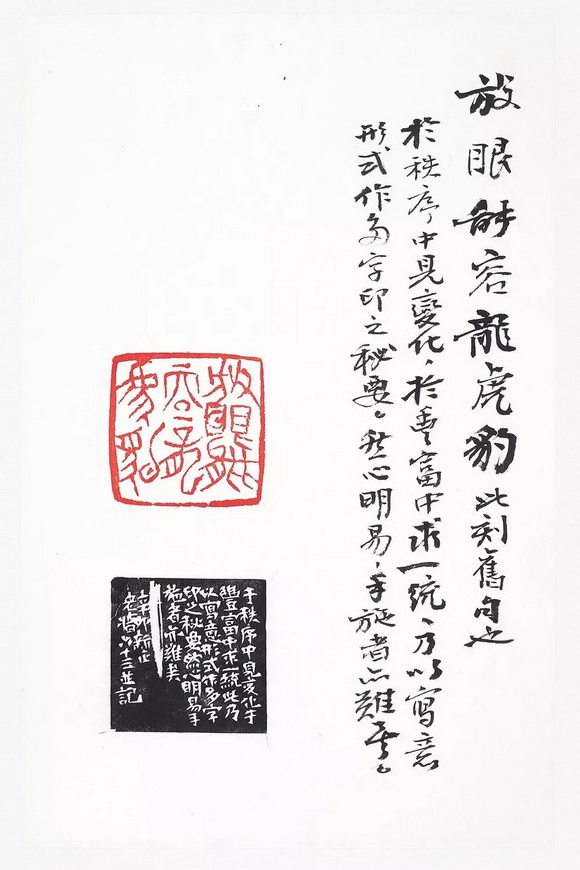 放眼能容龍虎豹 此刻舊句也
於秩序中見變化、於豐富中求一統、乃以寫意
形式作多字印之秘要。然心明易、手施者亦難矣。
放眼能
容龍
虎豹
于秩序中見變化于
豐富中求一統此乃
以寫意形式作多字
印之秘要然心明易手
施者亦難矣
辛卯
老將六十三並記